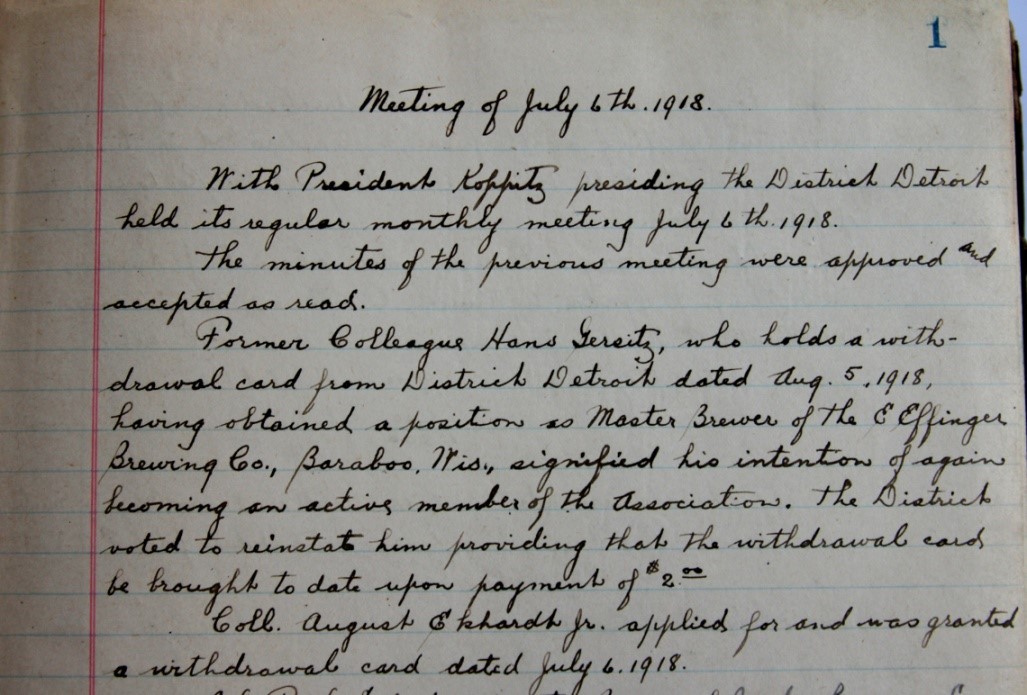 1
Meeting of July 6th. 1918.
With President Koppitz presiding the District Detroit
held its regular monthly meeting July 6th. 1918.
The minutes of the previous meeting were approved and
accepted as read.
Former Colleague Hans Gersitz, who holds a with-
drawal card from District Detroit dated Aug. 5, 1918,
having obtained a position as Master Brewer of the E Effinger
Brewing Co., Baraboo, Wis., signified his intention of again
becoming an active member of the Association. The District
voted to reinstate him providing that the withdrawal card
be brought to date upon payment of $2.00
Coll. August Ekhardt Jr. applied for and was granted
a withdrawal card dated July 6. 1918.